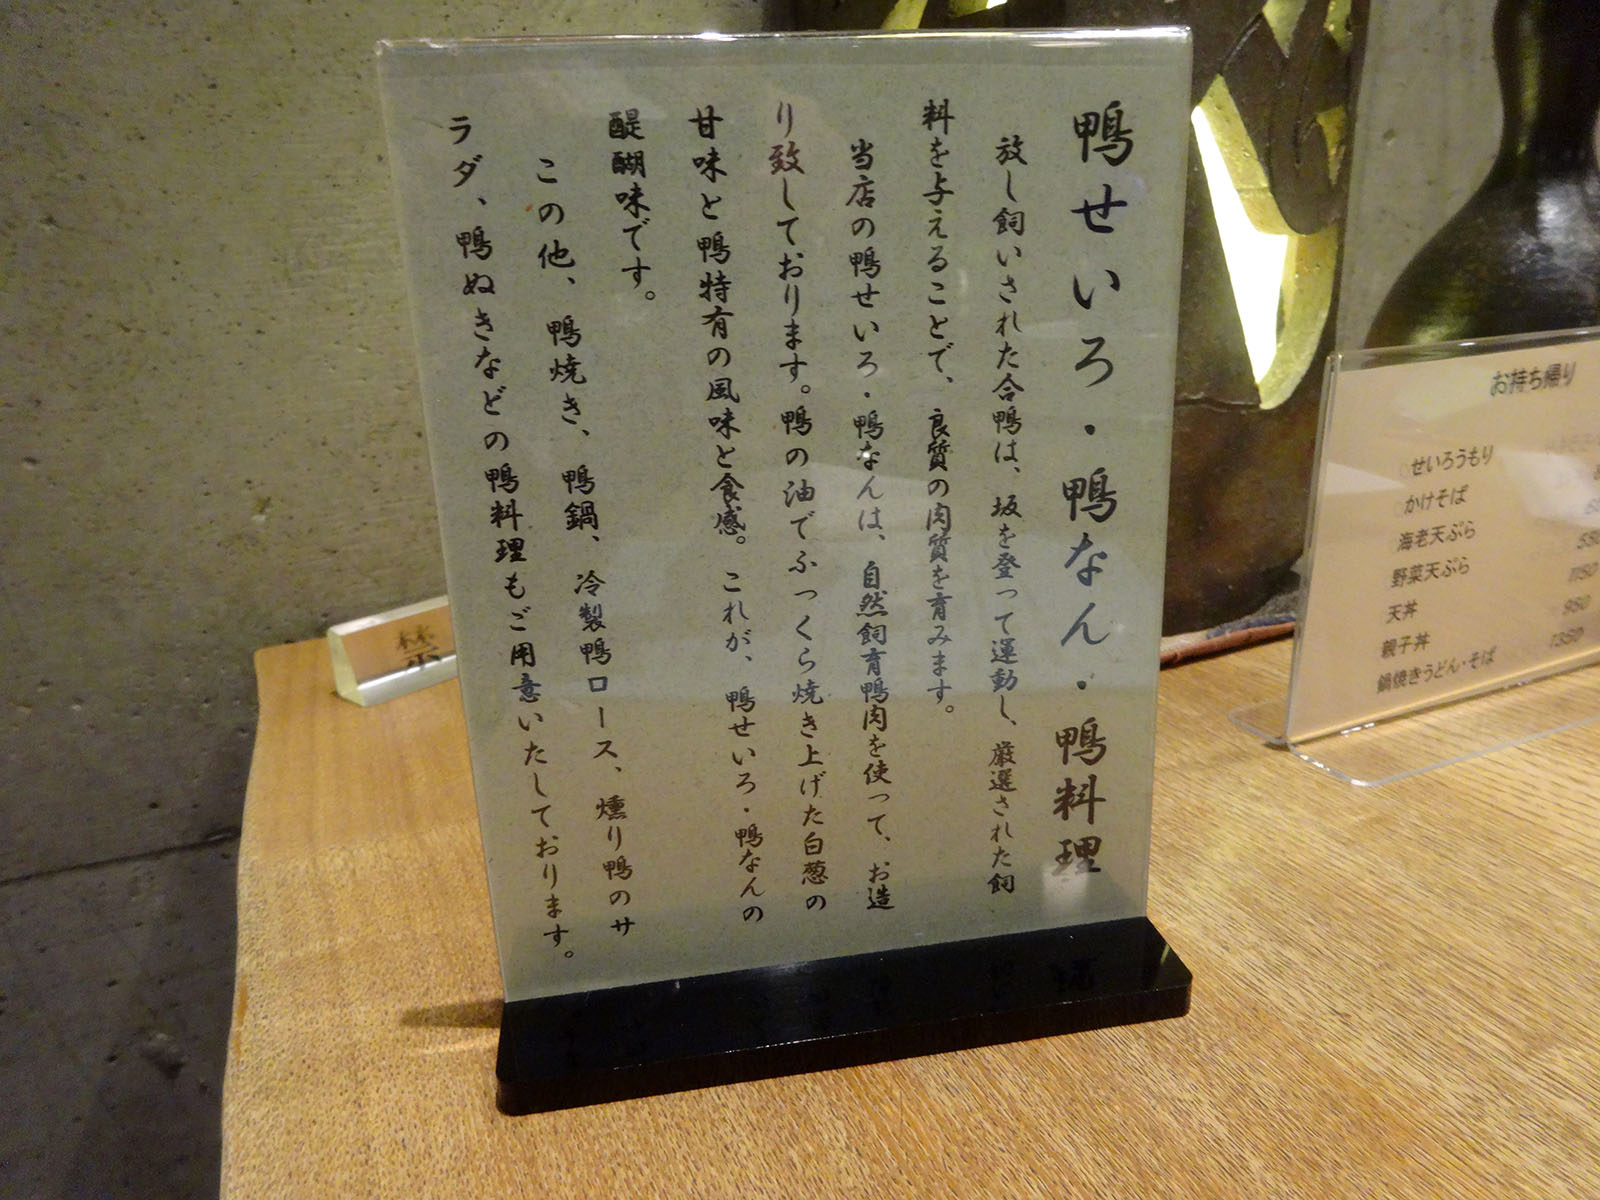 鴨せいろ・鴨なん・鴨料理
放し飼いされた合鴨は、坂を登って運動し、厳選された飼
料を与えることで、良質の肉質を育みます。
当店の鴨せいろ・鴨なんは、自然飼育鴨肉を使って、お造
り致しております。鴨の油でふっくら焼き上げた白葱の
甘味と鴨特有の風味と食感。これが、鴨せいろ・鴨なんの
醍醐味です。
この他、鴨焼き、鴨鍋、冷製鴨ロース、燻り鴨のサ
ラダ、鴨ぬきなどの鴨料理もご用意いたしております。
お持ち帰り
せいろうもり
かけそば
海老天ぷら
野菜天ぷら 1150
天丼 950
親子丼 1350
鍋焼きうどん・そば
禁